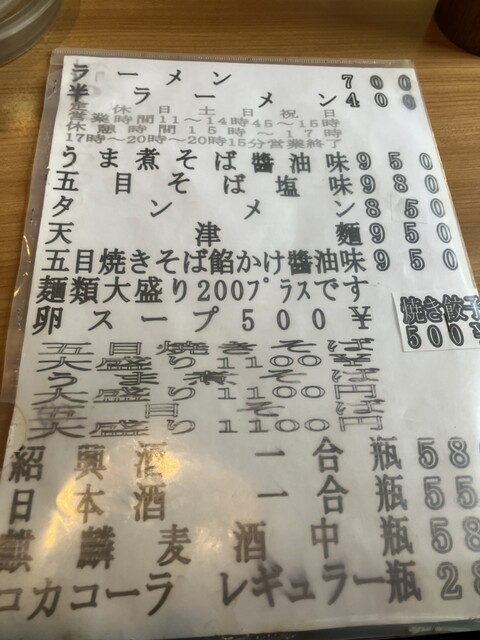 ラーメン 700
半ラーメン 400
定休日土日祝日
営業時間11〜14時45〜15時
休憩時間15時〜17時
17時〜20時〜20時15分営業終了
うま煮そば醬油味 950
五目そば塩味 980
タンメン 850
天津麺 950
五目焼きそば餡かけ醬油味 950
麺類大盛り200プラスです
卵スープ500¥
焼き餃子
500¥
五目焼きそば
大盛り1100¥
うま煮そば
大盛り1100円
五目そば
大盛り1100円
紹興酒一合瓶58
日本酒一合瓶55
麒麟麦酒中瓶58
コカコーラ レギュラー瓶28